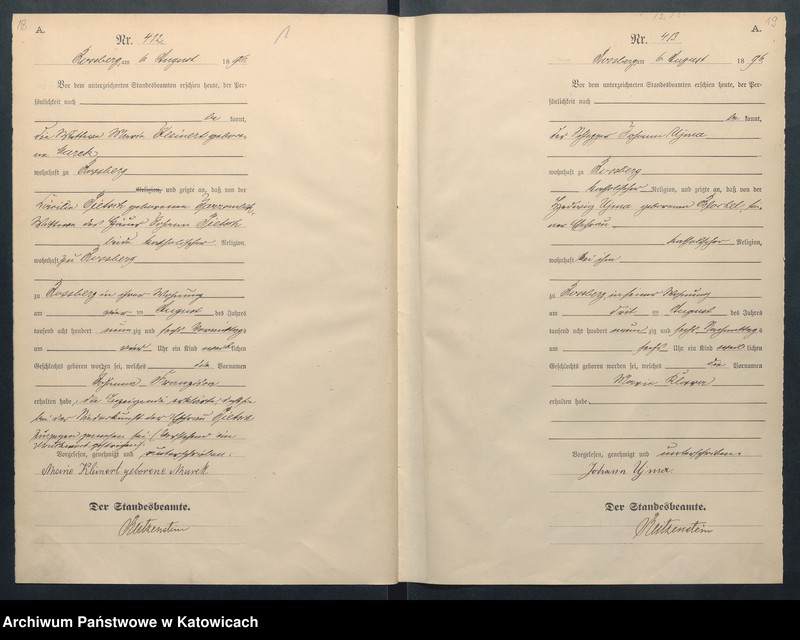 18
A.
Nr. 412.
Rossberg am 6 August 1896
Vor dem unterzeichneten Standesbeamten erschien heute, der Per-
sönlichkeit nach
be kannt,
die Wittwe Marie Kleinert gebore-
ne Marek
wohnhaft zu Rossberg
Religion, und zeigte an, daß von der
Pietsch geborenen
Wittwe des Johann Pietsch
beide katholischer Religion,
wohnhaft zu Rossberg
zu Rossberg in ihrer Wohnung
am vier ten August des Jahres
tausend acht hundert neun zig und sechs Vormittags
um vier Uhr ein Kind weib lichen
Geschlechts geboren worden sei, welches die Vornamen
Franziska
erhalten habe; die Anzeigende erklärte, daß sie
bei der Niederkunft der Pietsch
zugegen gewesen sei. (Vorstehend ein
Druckwort gestrichen).
Vorgelesen, genehmigt und unterschrieben.
Marie Kleinert geborene Marek
Der Standesbeamte.
Reitzenstein
19
A.
Nr. 413
Rossberg am 6 August 1896
Vor dem unterzeichneten Standesbeamten erschien heute, der Per-
sönlichkeit nach
be kannt,
der Johann Ujma
wohnhaft zu Rossberg
katholischer Religion, und zeigte an, daß von der
Hedwig Ujma geborenen sei-
ner Ehefrau
katholischer Religion,
wohnhaft bei ihm
zu Rossberg in seiner Wohnung
am ten August des Jahres
tausend acht hundert neun zig und sechs Nachmittags
um sechs Uhr ein Kind weib lichen
Geschlechts geboren worden sei, welches die Vornamen
Marie Klara
erhalten habe.
Vorgelesen, genehmigt und unterschrieben.
Johann Ujma.
Der Standesbeamte.
Reitzenstein
Archiwum Państwowe w Katowicach